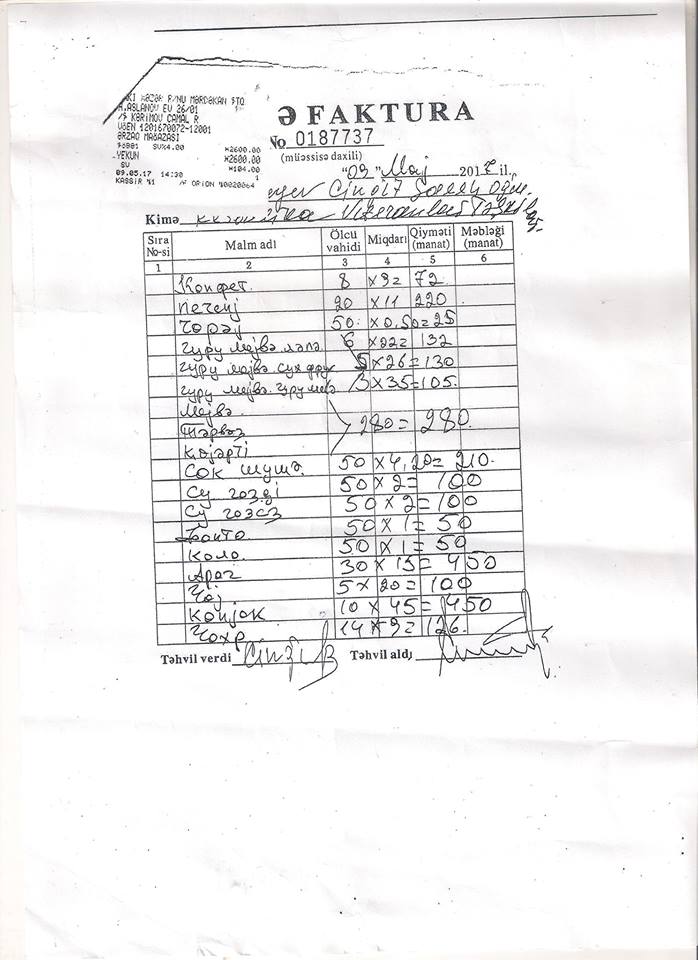 BAKI XƏZƏR R/NU MƏRDƏKAN ŞTQ
H.ASLANOV EV 26/01
/Ş KƏRİMOV CAMAL R
VÖEN 1201670072-12001
ƏRZAQ MAĞAZASI
SV%4.00 *2600.00
YEKUN *2600.00
SV *104.00
09.05.17 14:30
KASSİR №1 ORION №0020064
Ə FAKTURA
No 0187737
(müəssisə daxili)
"09" Maj 2017 il,
Kimə
Sıra No-si Malın adı Ölçü vahidi Miqdarı Qiyməti (manat) Məbləği (manat)
1 2 3 4 5 6
Конфет 8 x 9 = 72
печенј 20 x 11 220
Чорəк 50 x 0,50 = 25
гуру мејвə лəпə 6 x 22 = 132
гуру мејвə сух фрук 5 x 26 = 130
гуру мејвə гуру мејвə 3 x 35 = 105
Мејвə
Тəрвəз 280 = 280
Көјəрти
Сок шушə 50 x 4,20 = 210
Су газлі 50 x 2 = 100
Су газсз 50 x 2 = 100
Фанта 50 x 1 = 50
Кола 50 x 1 = 50
Араг 30 x 15 = 450
Чај 5 x 20 = 100
Конјак 10 x 45 = 450
Чахр 14 x 9 = 126
Təhvil verdi Təhvil aldı